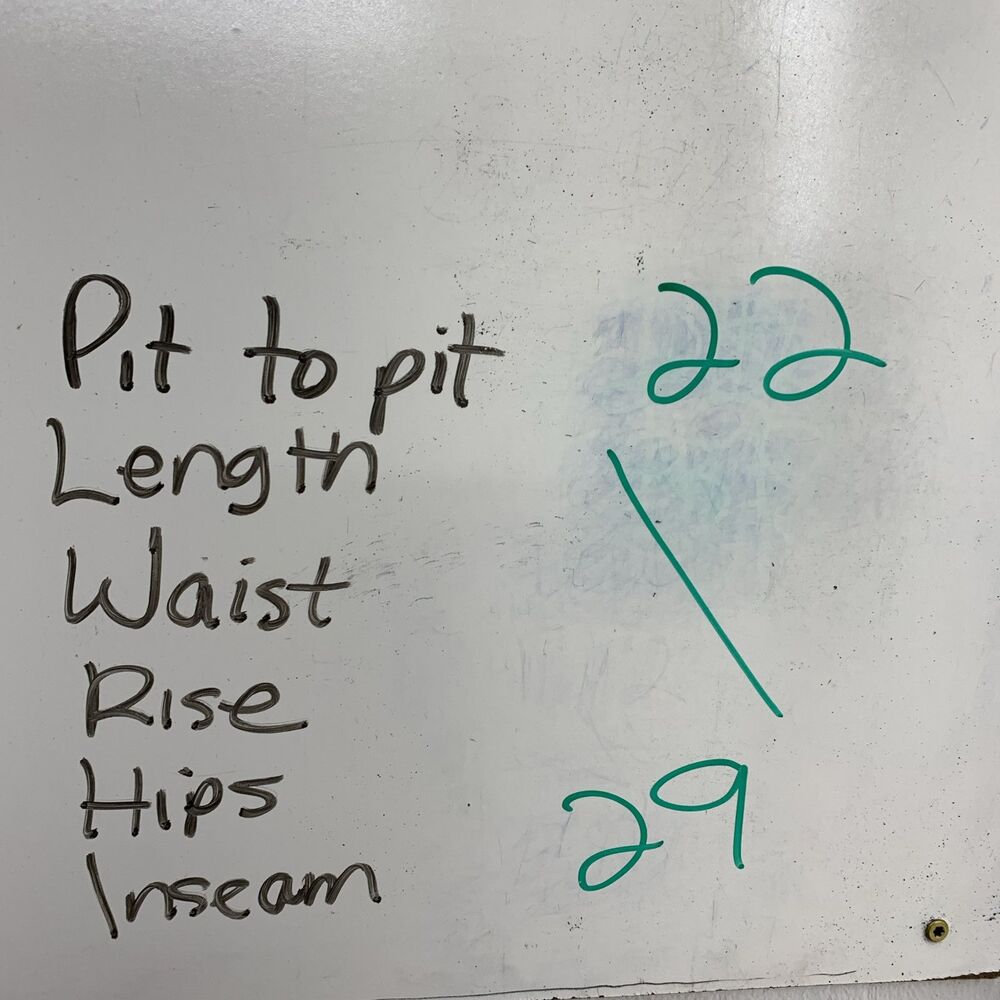 Pit to pit 22
Length
Waist
Rise
Hips
Inseam 29